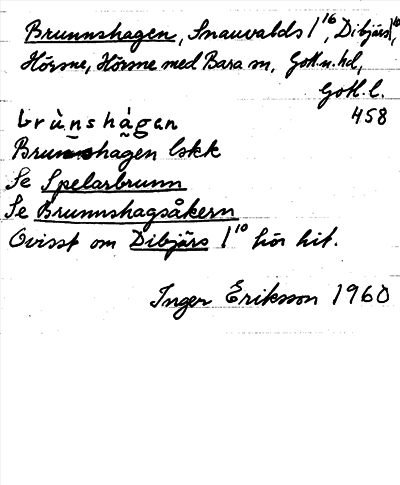 Brunnshagen, Snauvalds 1¹⁶, Dibjärs 1¹⁰,
Hörsne, Hörsne med Bara sn, Gotl.n.hd,
Gotl. l.
458
brùnshágen
Brunnshagen lskk
Se Spelarbrunn
Se Brunnshagsåkern
Ovisst om Dibjärs 1¹⁰ hör hit.
Inger Eriksson 1960